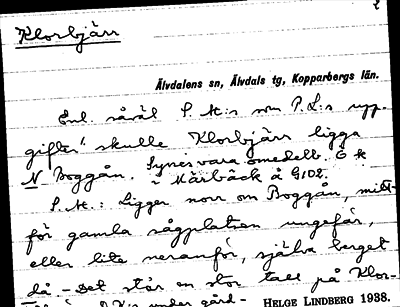 Klorbjärr
Älvdalens sn, Älvdals tg, Kopparbergs län.
Enl. såväl S.M:s som P.L:s upp-
gifter skulle Klorbjärr ligga
N Boggån. Synes vara omedelb. Ö k
i Märbäck å G102.
S.M.: Ligger norr om Boggån, mitt-
för gamla sågplatsen ungefär,
eller lite neranför, själva berget
då - Det står en stor tall på Klor-
under gård-
HELGE LINDBERG 1938.